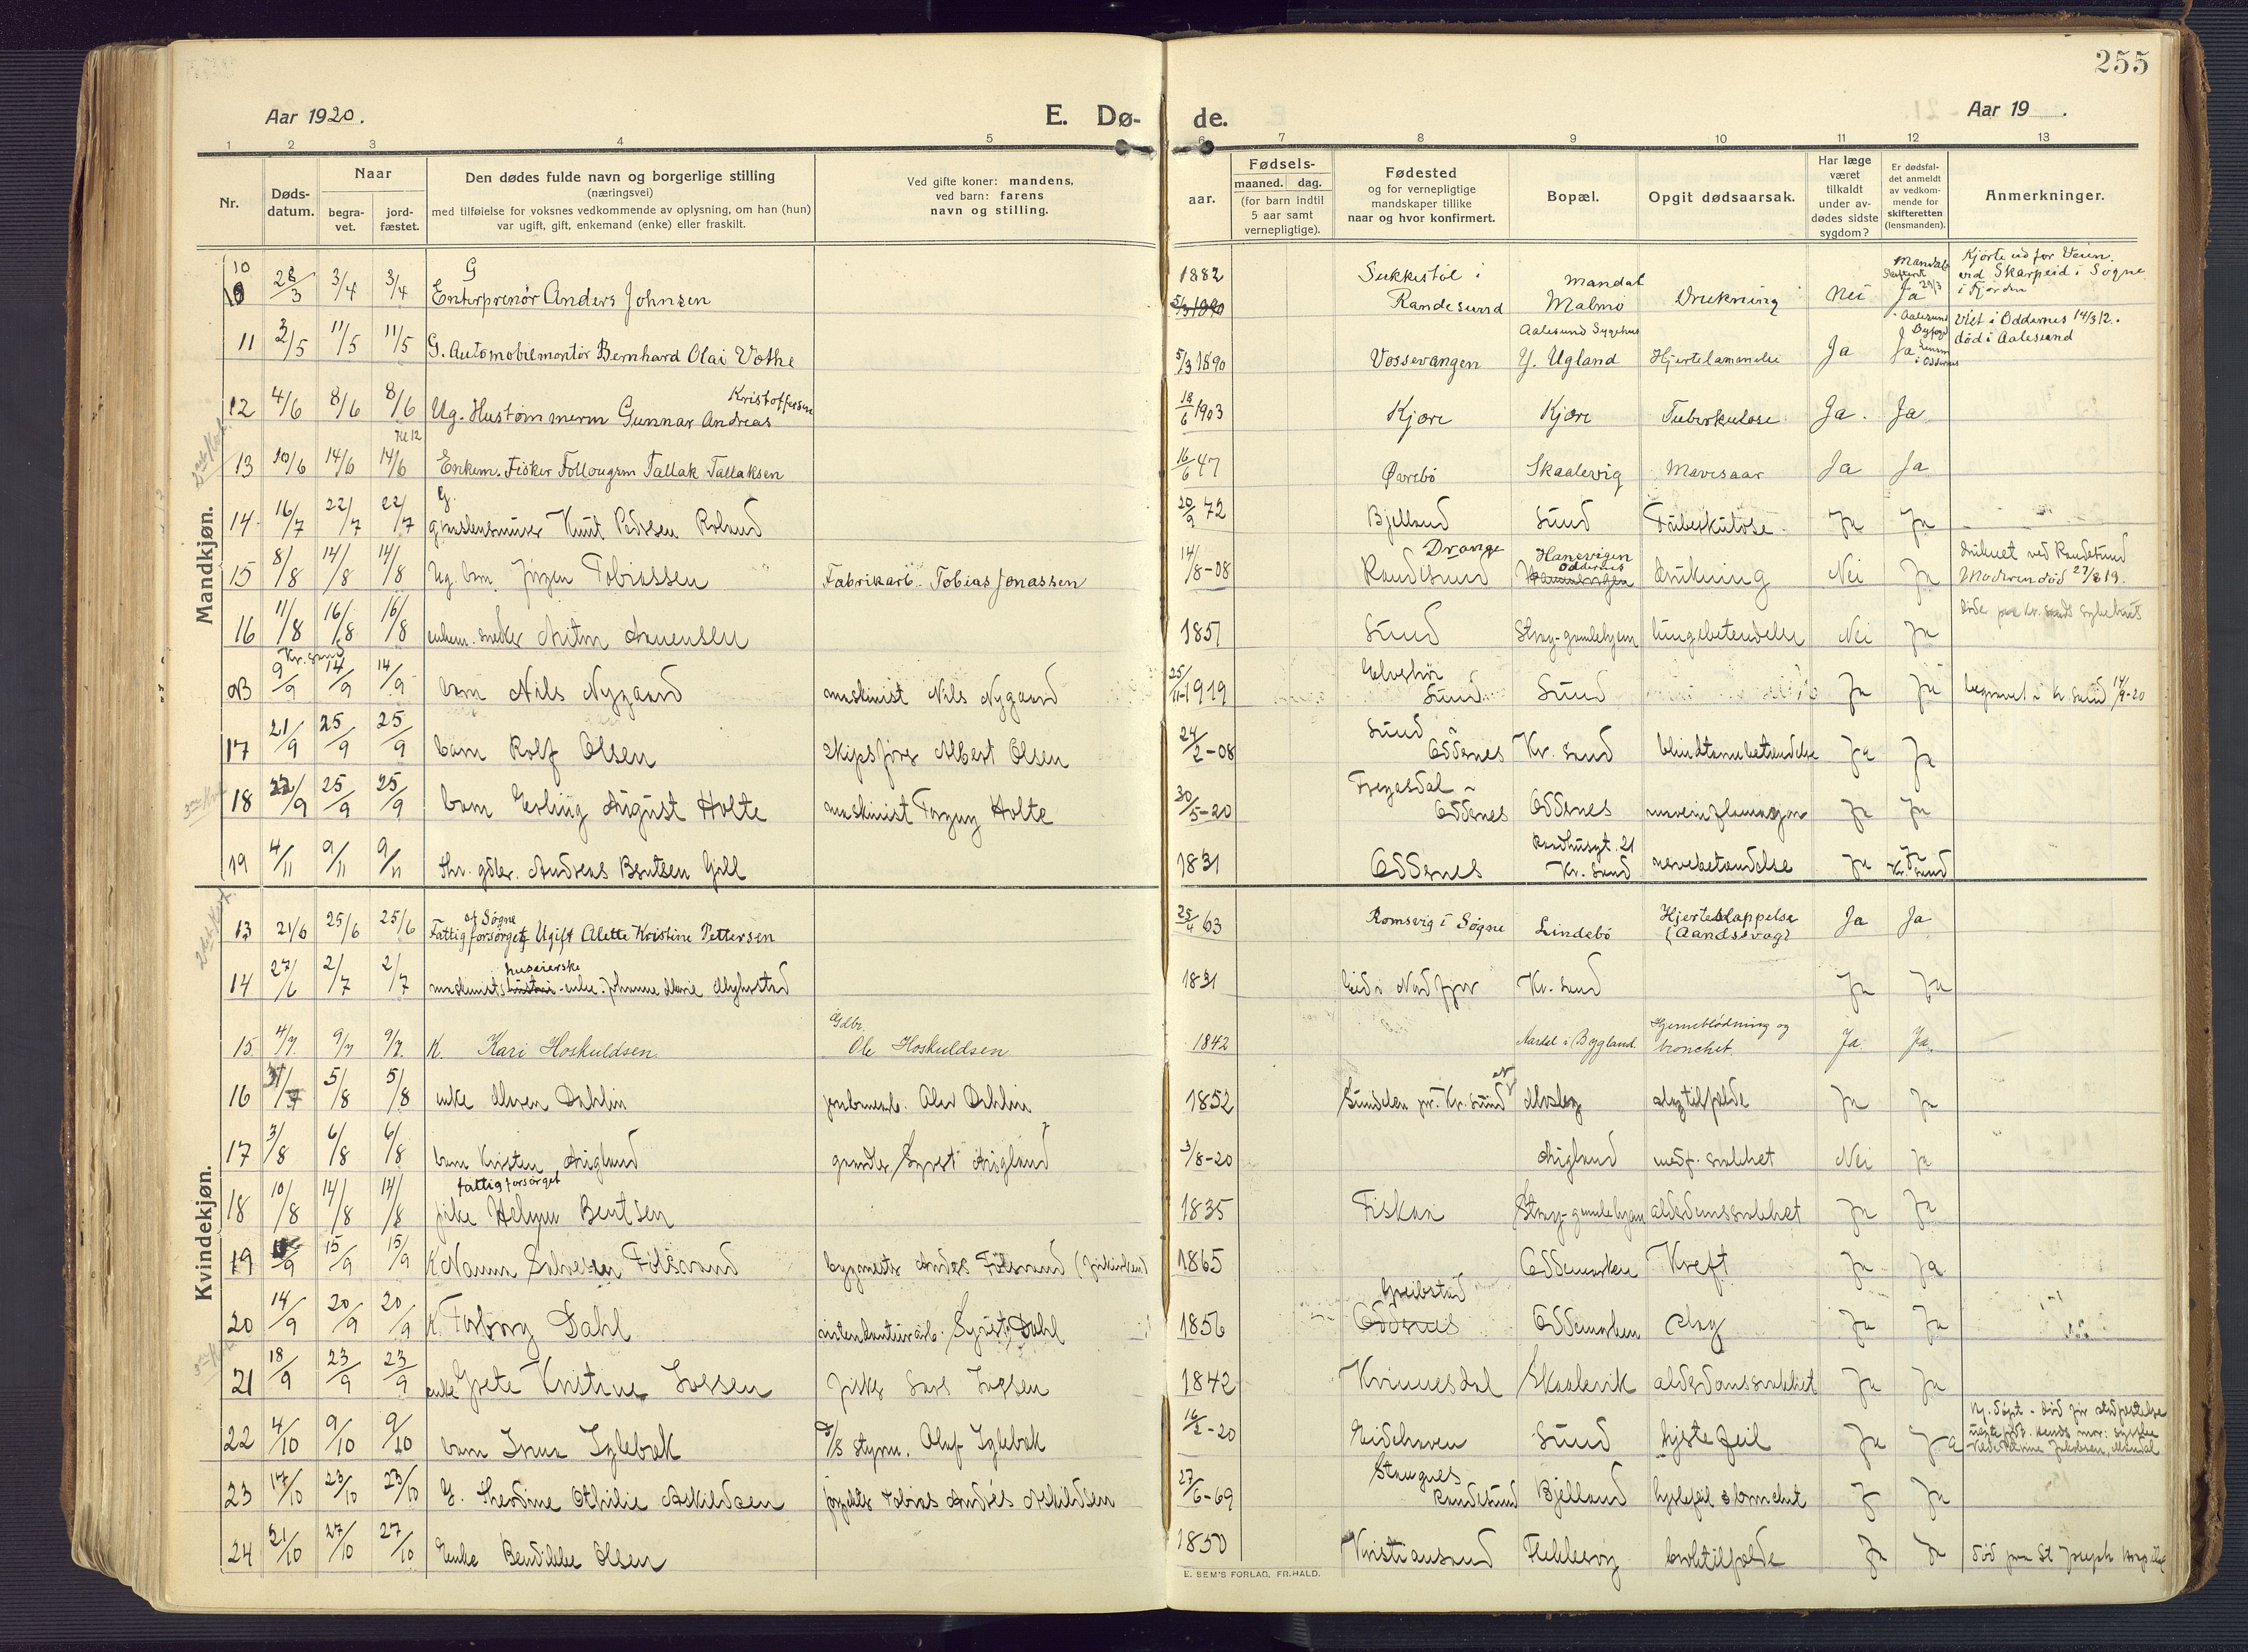 255
Aar 1920.
E. Dø- de.
Aar 19 .
1 2 3 4 5 6 7 8 9 10 11 12 13
Nr.
Døds-
datum.
Naar
begra-
vet.
jord-
fæstet.
Den dødes fulde navn og borgerlige stilling
(næringsvei)
med tilføielse for voksnes vedkommende av oplysning, om han (hun)
var ugift, gift, enkemand (enke) eller fraskilt.
Ved gifte koner: mandens,
ved barn: farens
navn og stilling.
aar.
Fødsels-
maaned. dag.
(for barn indtil
5 aar samt
vernepligtige).
Fødested
og for vernepligtige
mandskaper tillike
naar og hvor konfirmert.
Bopæl.
Opgit dødsaarsak.
Har læge
været
tilkaldt
under av-
dødes sidste
sygdom?
Er dødsfal-
det anmeldt
av vedkom-
mende for
skifteretten
(lensmanden).
Anmerkninger.
Mandkjøn.
10 28/3 3/4 3/4 G Enterprenör Anders Johnsen 1882 Sukkestöl i Randesund Mandal Malmö Drukning Nei Ja 29/3 Kjörte ud for Veien
ved Skarpeid i Sogne
i Fjorden
11 2/5 11/5 11/5 G. Automobilmontör Bernhard Olai Vothe 5/3 1890 Vossevangen Aalesund Sygehus Y. Ugland Hjertelammelse Ja Ja Viet i Oddernes 14/3 12.
död i Aalesund
12 4/6 8/6 8/6 Ug. Hustömmerm Gunnar Andreas Kristoffersen 18/6 1903 Kjære Kjære Tuberkulose. Ja. Ja
13 10/6 14/6 14/6 Enkem. Fisker Tallak Tallaksen 16/6 47 Øvrebö Skaalevig Mavesaar Ja Ja
14 16/7 22/7 22/7 G. Knut Pedersen Roland 20/9 72 Bjelland Sund Tuberkulose. Ja Ja
15 8/8 14/8 14/8 Ug. barn Jørgen Tobiassen Fabrikarb. Tobias Jonassen 14/8-08 Drange Randesund Hanevigen Oddernes drukning Nei Ja druknet ved Randesund
Moderen död 27/8 19.
16 11/8 16/8 16/8 enkem. snedker Anton 1851 Sund Stray-gamlehjem lungebetendelse Nei Ja
Kr. sand
9/9 14/9 14/9 barn Nils Nygaard maskinist Nils Nygaard 25/11-1919 Sund Sund Ja Ja begravet i Kr. sand 14/9-20
17 21/9 25/9 25/9 barn Rolf Olsen skipsfører Albert Olsen 24/2-08 Sund Oddernes Kr. sand blindtarmbetendelse Ja Ja
18 22/9 25/9 25/9 barn Erling August Holte maskinist Torguy Holte 30/5-20 Oddernes Oddernes Ja Ja
19 4/11 9/11 9/11 Andreas Bentsen Gill 1831 Oddernes Raadhusgt. 21 Kr. sand nervebetendelse Ja Ja Kr. sand
Kvindekjøn.
13 21/6 25/6 25/6 Fattigforsørget af Søgne Ugift Alette Kristine Pettersen 25/4 63 Romsvig i Søgne Lindebö Hjerteslappelse
(Aandssvag) Ja Ja
14 27/6 2/7 2/7 maskinists huseierske enke. Johanne Marie Myhrstad 1831 Eid i Nordfjor Kr. sand Ja Ja
15. 4/7. 9/7 9/7. K. Kari Hoskuldsen Gdbr. Ole Hoskuldsen 1842 i Bygland. Hjerneblödning og
bronchit. Ja Ja.
16 31/7 5/8 5/8 enke Maren Dahlin Olav Dahlin 1852 Kr. sund Mosby slagtilfælde Ja Ja
17 3/8 6/8 6/8 barn Kirsten Augland Syvert Augland 3/8-20 Augland medf. svakhet Nei Ja
18 10/8 14/8 14/8 fattigforsörget pike Helene Bentsen 1835 Fiskaa Stray-gamlehjem alderdomssvakhet Ja Ja
19 15/9 15/9 K Nanna Salvesen Fölsvand byggmester Anders Fölsvand 1865 Oddemarken Kreft Ja Ja
20 14/9 20/9 20/9 K. Torborg Dahl intendanturarb. Syvert Dahl 1856 Greibstad Oddernes Oddemarken slag Ja Ja
21 18/9 23/9 23/9 enke Grete Kristine Larsen fisker Lars Larsen 1842 Kvinnesdal Skaalevik alderdomssvakhet Ja Ja
22 4/10 9/10 9/10 barn Irma Iglebæk D/S styrm. Olaf Iglebæk 16/2-20 Eidehaven Sund hjertefeil Ja Ja
23 17/10 23/10 23/10 G. Theodine Othilie Askildsen Tobias Andrés Askildsen 27/6-69 Stangnes Randesund Bjelland hjertefeil & bronchit Ja Ja
24 21/10 27/10 27/10 Enke Bendikke Olsen 1850 Kristiansand Flekkerøy Ja Ja Död paa St Joseph hospital
E. SEM'S FORLAG, FR.HALD.